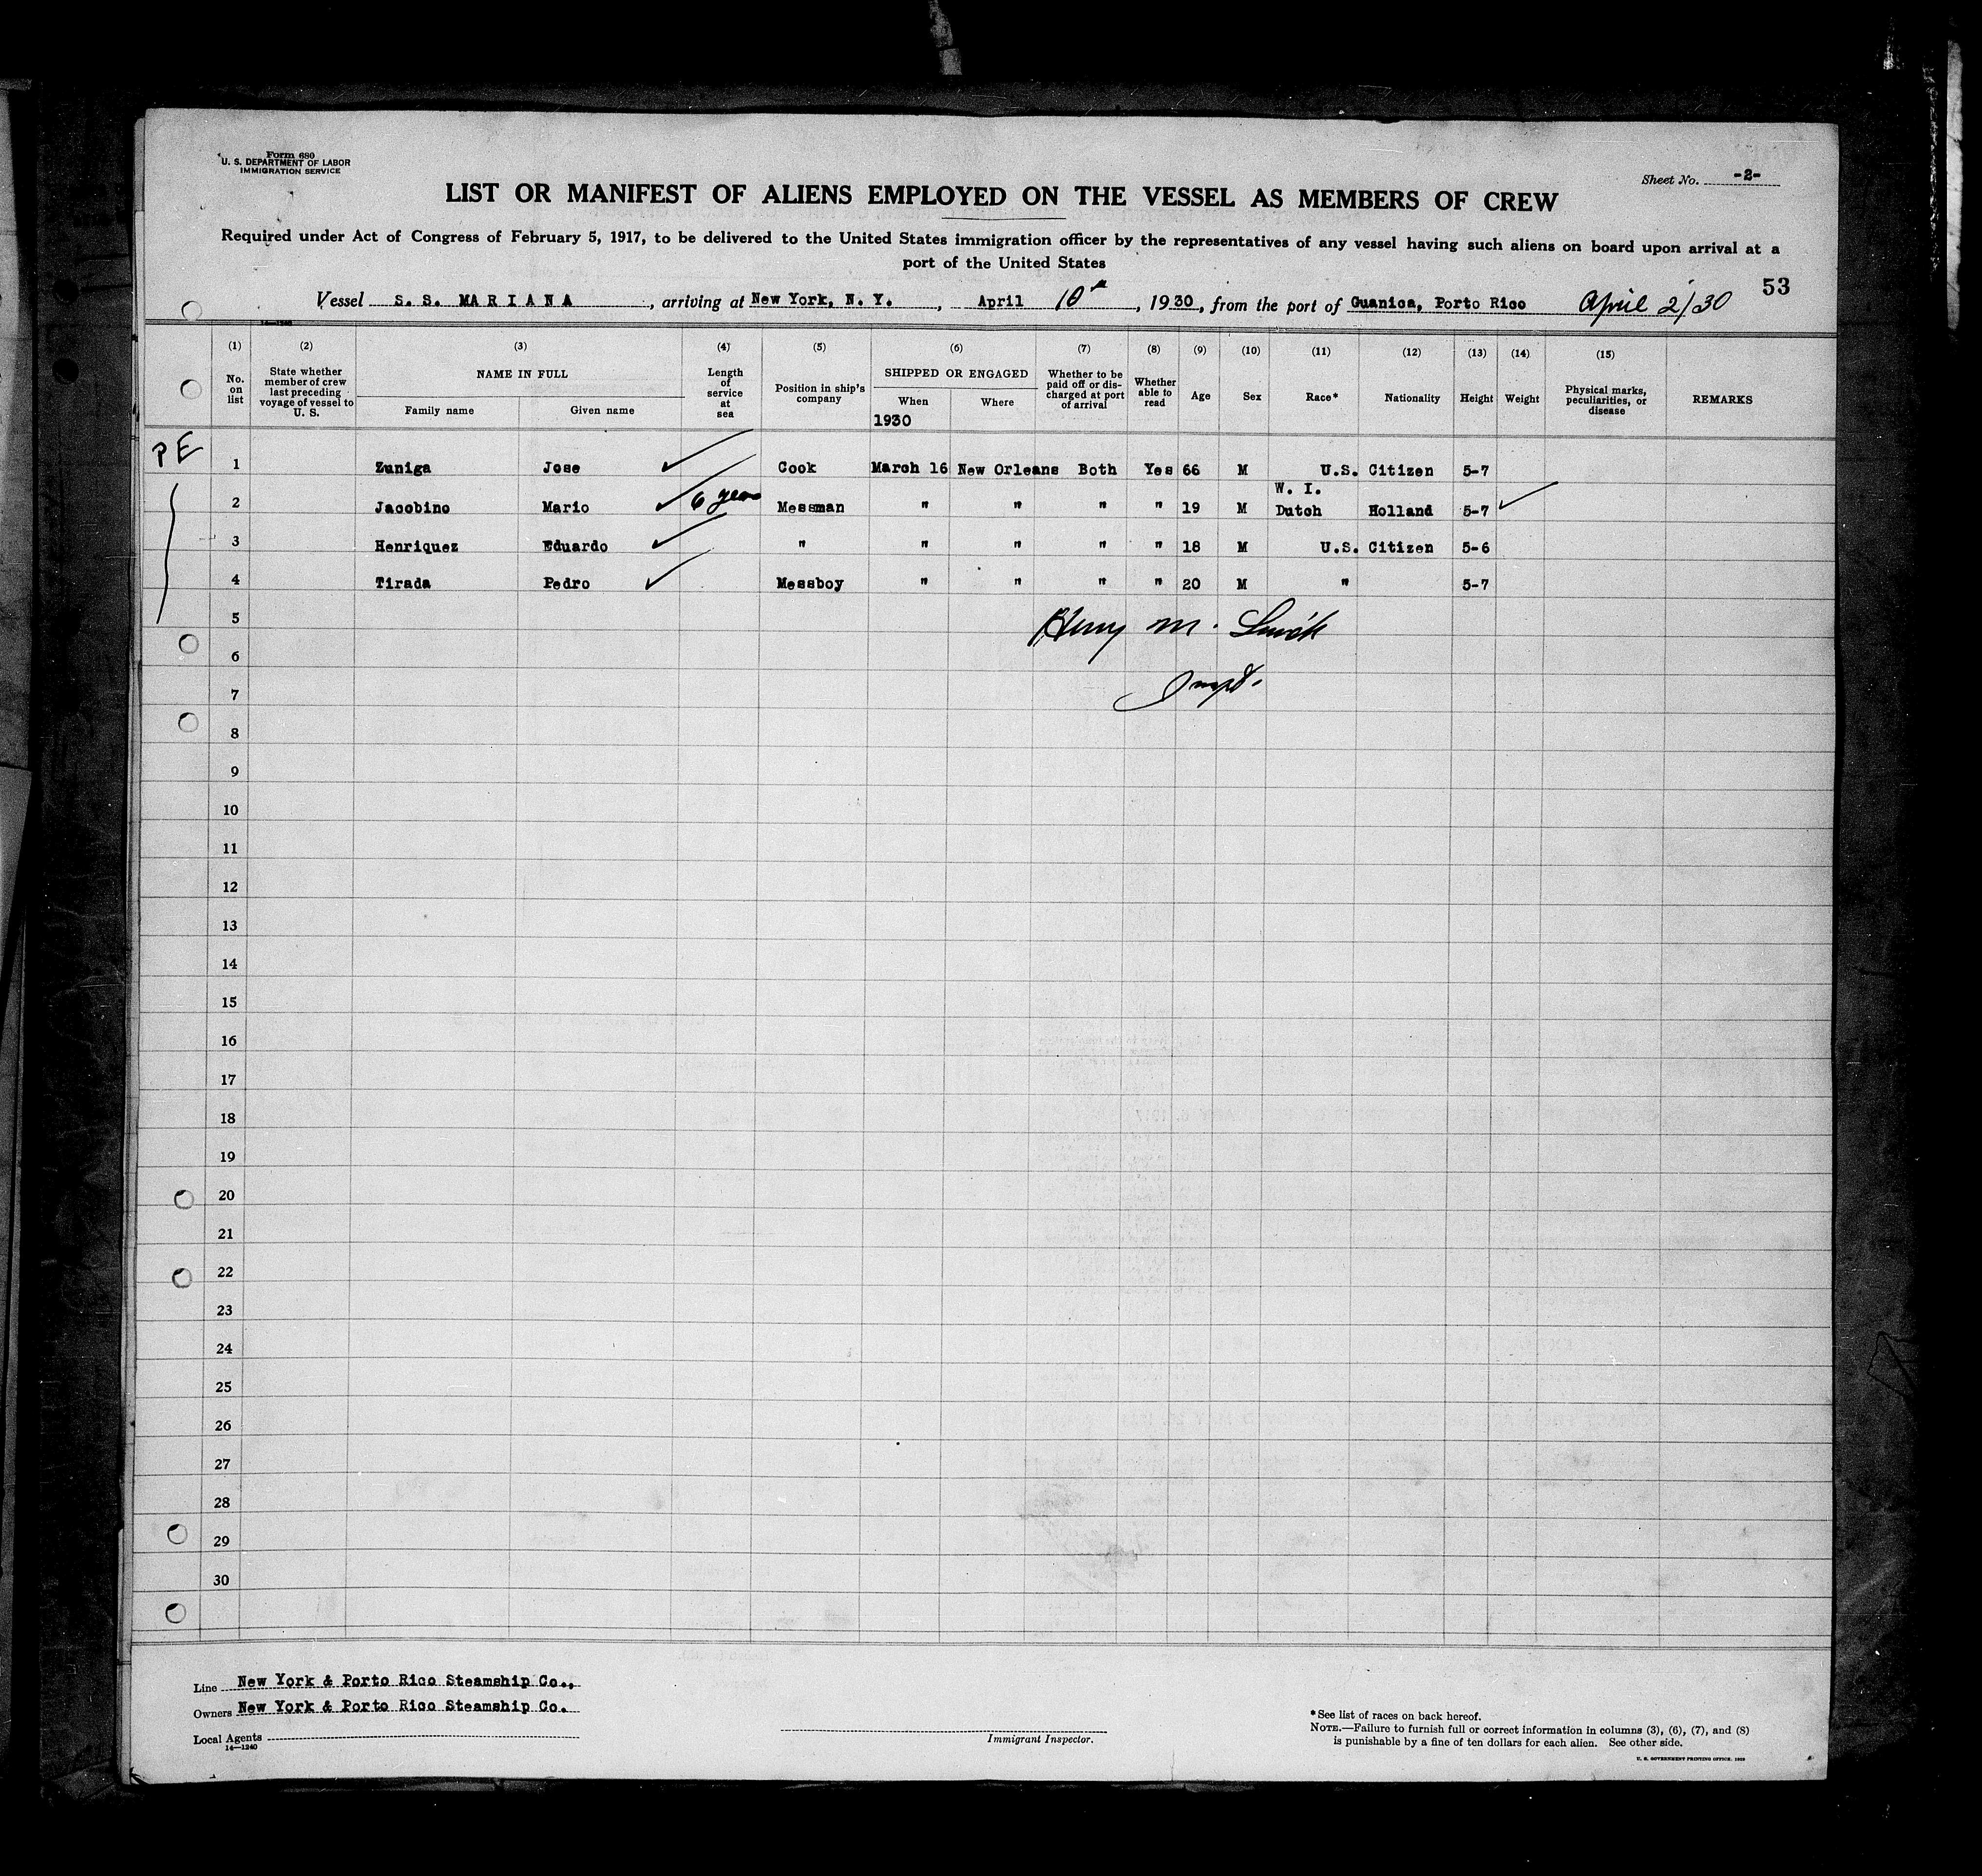 Form 680
U. S. DEPARTMENT OF LABOR
IMMIGRATION SERVICE
Sheet No. -2-
LIST OR MANIFEST OF ALIENS EMPLOYED ON THE VESSEL AS MEMBERS OF CREW
Required under Act of Congress of February 5, 1917, to be delivered to the United States immigration officer by the representatives of any vessel having such aliens on board upon arrival at a
port of the United States
53
Vessel S. S. MARIANA, arriving at New York, N. Y., April 10th, 1930, from the port of Guanica, Porto Rico April 2/30
14-1240
(1) No. on list
(2) State whether member of crew last preceding voyage of vessel to U. S.
(3) NAME IN FULL Family name Given name
(4) Length of service at sea
(5) Position in ship's company
(6) SHIPPED OR ENGAGED When Where
1930
(7) Whether to be paid off or discharged at port of arrival
(8) Whether able to read
(9) Age
(10) Sex
(11) Race*
(12) Nationality
(13) Height
(14) Weight
(15) Physical marks, peculiarities, or disease
REMARKS
PE
1 Zuniga Jose Cook March 16 New Orleans Both Yes 66 M U.S. Citizen 5-7
2 Jacobino Mario 6 years Messman " " " " 19 M W. I. Dutch Holland 5-7
3 Henriquez Eduardo " " " " " 18 M U.S. Citizen 5-6
4 Tirada Pedro Messboy " " " " 20 M " 5-7
5
Henry M.
6
7
8
9
10
11
12
13
14
15
16
17
18
19
20
21
22
23
24
25
26
27
28
29
30
Line New York & Porto Rico Steamship Co.,
Owners New York & Porto Rico Steamship Co.
Local Agents
14—1240
Immigrant Inspector.
*See list of races on back hereof.
NOTE.—Failure to furnish full or correct information in columns (3), (6), (7), and (8)
is punishable by a fine of ten dollars for each alien. See other side.
U. S. GOVERNMENT PRINTING OFFICE. 1929